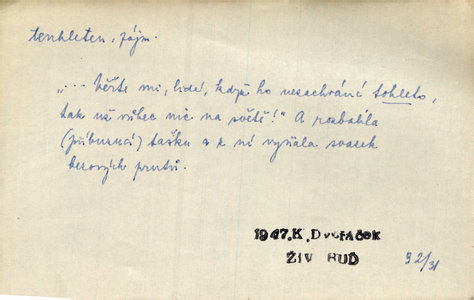 tenhleten, zájm.
"... Věřte mi, lidé, když ho nezachrání tohleto,
tak už vůbec nic na světě!" A rozbalila
(příbuzná) tašku a z ní vyňala svazek
bezových prutů.
1947. K. Dvořáček
ŽIV BUĎ
92/31